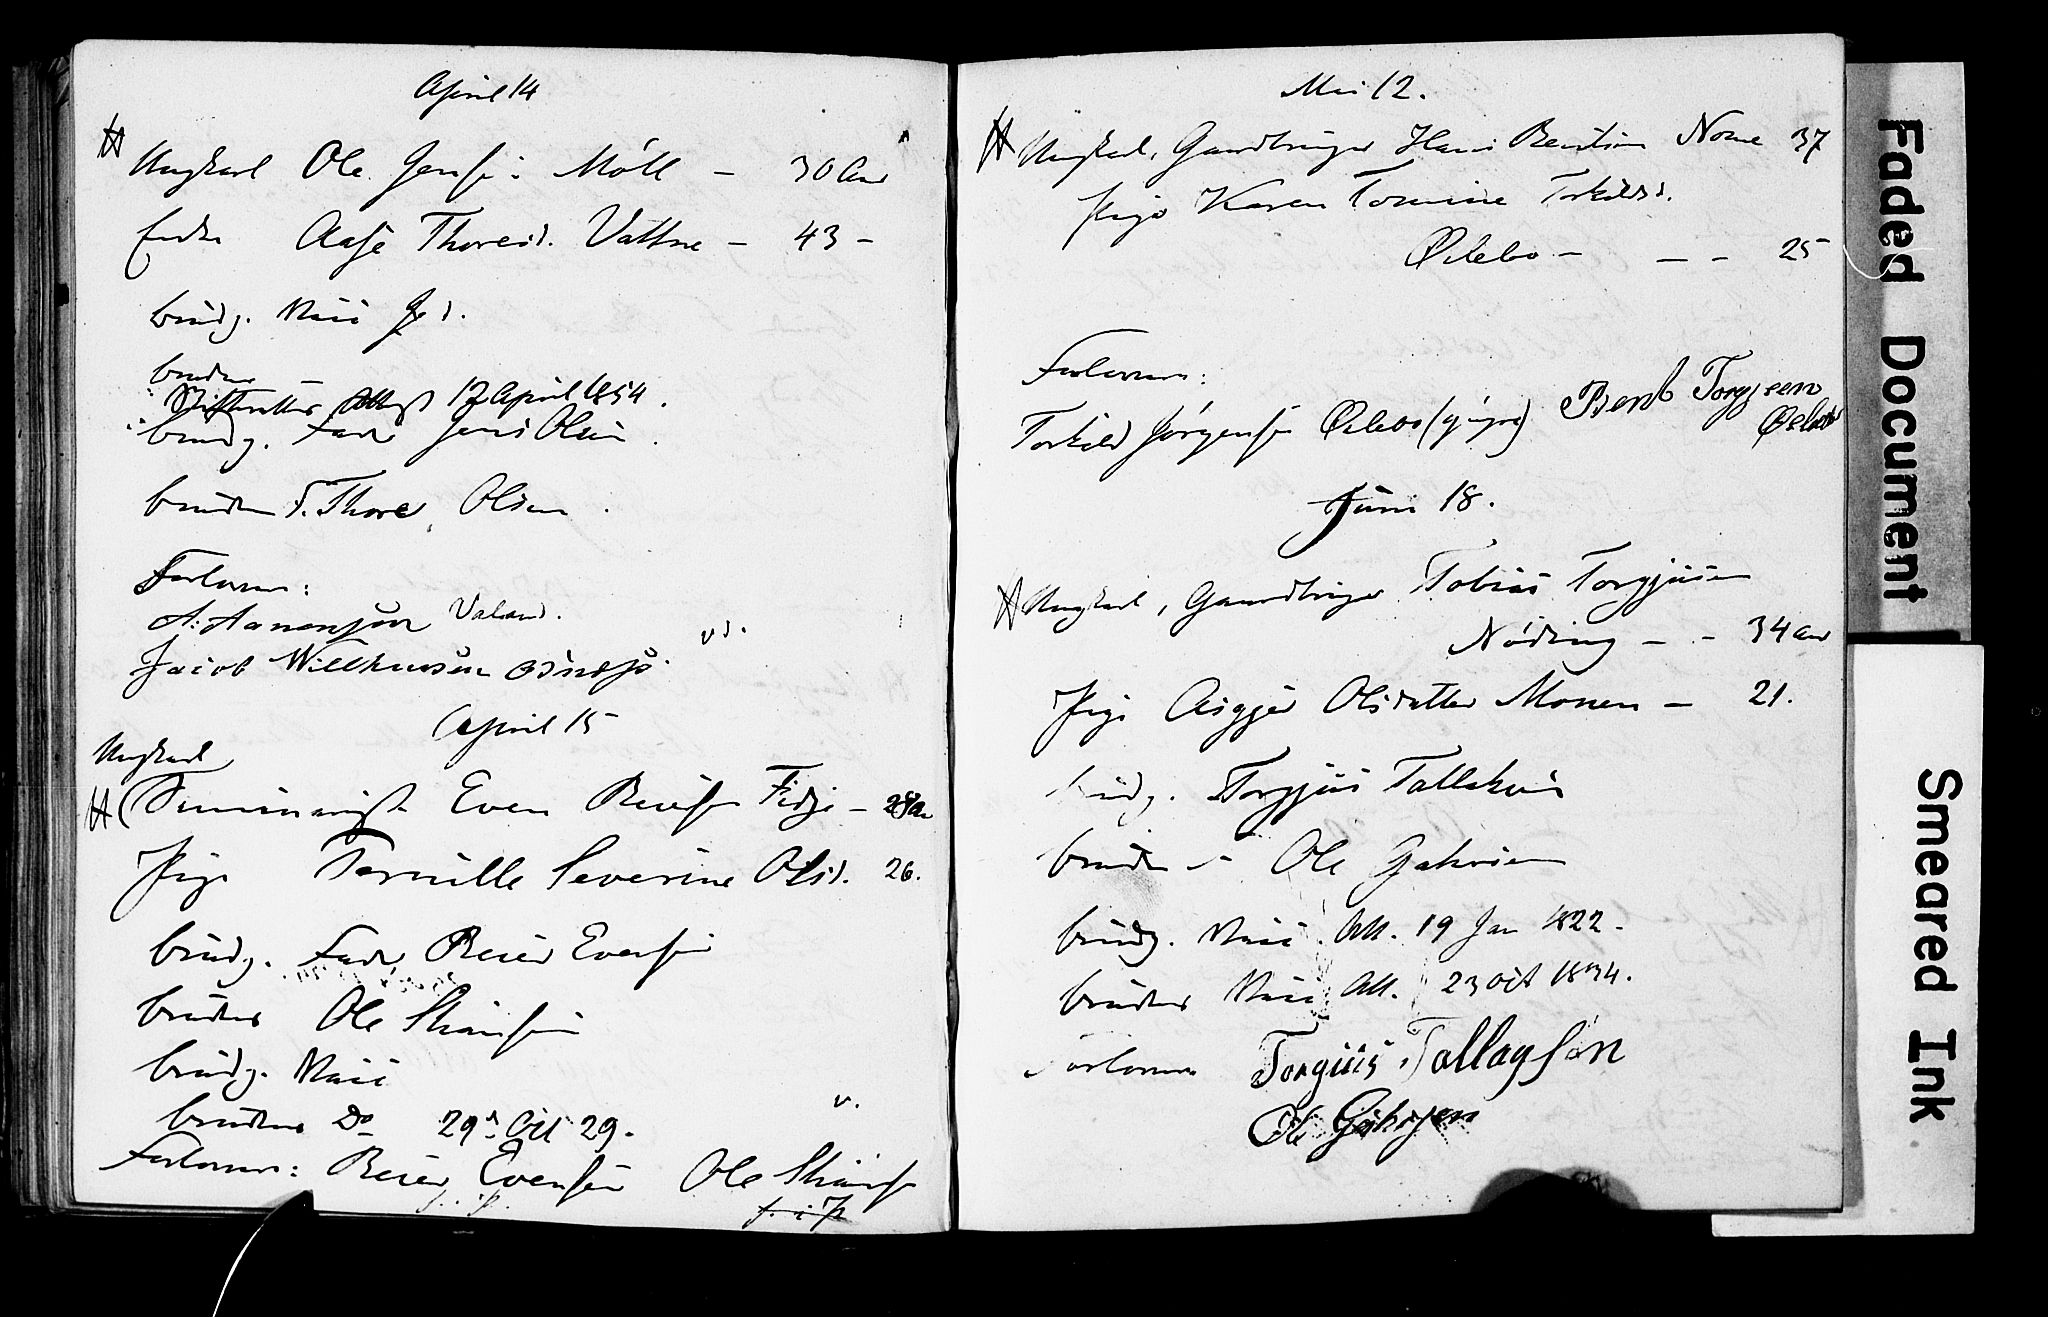 April 14
Ungkarl Ole Jens: Möll - 30 Aar
Enke Aase Thoresd. Vattne - 43 -
brudg. Vacc
brudens
Skifteretts Attest 12 April 1854.
brudg. Fader Jens Olsen.
brudens F. Thore Olsen.
Forlovere:
A: Aanensøn Valand.
Jacob Willhumsen
April 15
Ungkarl
Seminarist Even Reiers Fidje -
Pige Pernille Severine Olsd. 26.
brudg. Fader Reier Evensen
brudens Ole
brudg. Vacc
brudens Do 29 Oct 29.
v.
Forlovere: Reier Evensen Ole
Mai 12.
Ungkarl, Gaardbruger Hans Bentsen Nome 37
Pige Karen Tomine Torkildsd.
Øilebo - - - 25
Forlovere:
Torkild Jörgensen Øilebo Bent Torgjsen
Øilebo
Juni 18.
Ungkarl, Gaardbruger Tobias Torgjusen
Nöding - - 34 Aar
Pige Asgjer Olsdatter Monen - 21.
brudg. Torgjus Tallaksen
brudens F Ole
brudg. Vacc. Att. 19 Jan 1822.
brudens Vacc Att. 23 Oct 1834.
Forlovere Torgius Tallagsøn
Ole
Faded Document
Smeared Ink